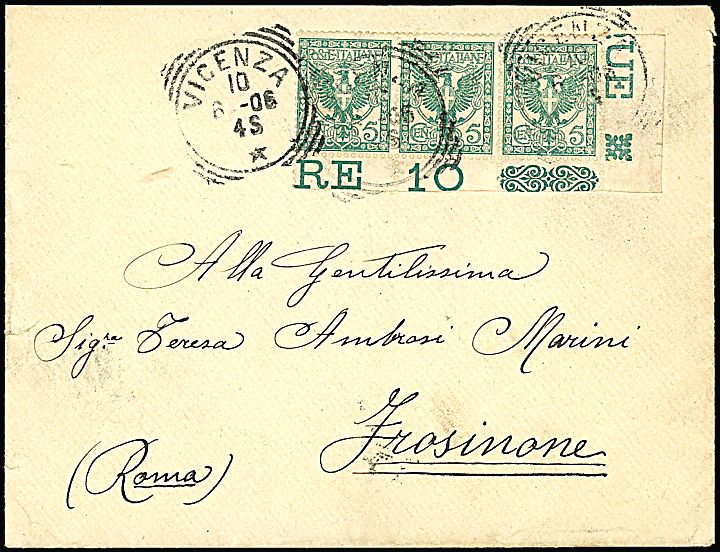 VICENZA
10
6 -06
4S
POSTE·ITALIANE POSTE·ITALIANE POSTE·ITALIANE
CENT 5 CENT 5 CENT 5
UE
RE 10
Alla Gentilissima
Sig.ra Teresa Ambrosi Marini
Frosinone
(Roma)